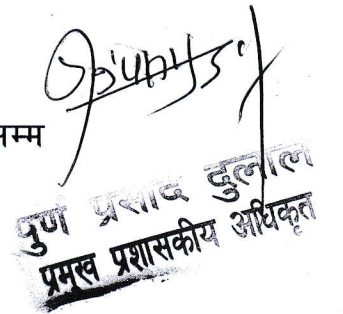 सम्म
पुर्ण प्रसाद दुलाल
प्रमुख प्रशासकीय अधिकृत